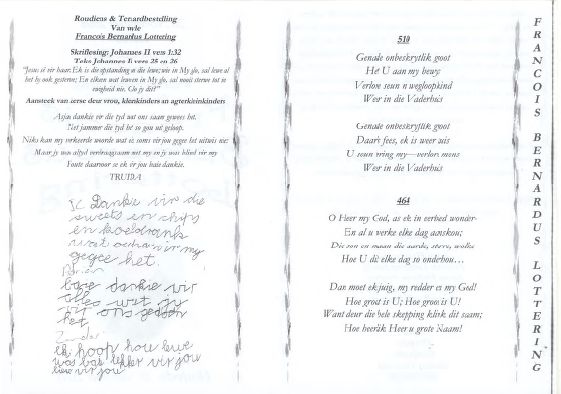 Roudiens & Teraardbestelling
Van wyle
Francois Bernardus Lottering
Skriflesing: Johannes II vers 1:32
Teks Johannes 11 vers 25 en 26
"Jesus sê vir haar: Ek is die opstanding en die lewe; wie in My glo, sal lewe al
het hy ook gesterwe; En elkeen wat lewe en in My glo, sal nooit sterwe tot in
ewigheid nie. Glo jy dit?"
Aansteek van kerse deur vrou, kleinkinders en agterkleinkinders
dankie vir die tyd wat ons saam gewees het.
Net jammer die tyd het so gou uit geloop.
Niks kan my verkeerde woorde wat ek soms vir jou gegee het uitwis nie:
Maar jy was altyd verdraagsaam met my en jy was blind vir my
Foute daarvoor se ek vir jou baie dankie.
TRUIDA
Dankie vir die
sweets en chips
en koeldrank
wat oupa vir my
gegee het.
baie dankie vir
alles wat jy
vir ons gedoen
het
ek hoop hou
was baie lekker vir jou
lewe vir jou
510
Genade onbeskryflik groot
Het U aan my bewys
Verlore seun en wegloopkind
Weer in die Vaderhuis
Genade onbeskryflik groot
Daar's fees, ek is weer tuis
U seun bring my – verlore mens
Weer in die Vaderhuis
464
O Heer my God, as ek in eerbied wonder
En al u werke elke dag aanskou;
Die son en maan die aarde, sterre, wolke
Hoe U dit elke dag so onderhou…
Dan moet ek juig, my redder en my God!
Hoe groot is U; Hoe groot is U!
Want deur die hele skepping klink dit saam;
Hoe heerlik Heer u grote Naam!
FRANCOIS BERNARDUS LOTTERING